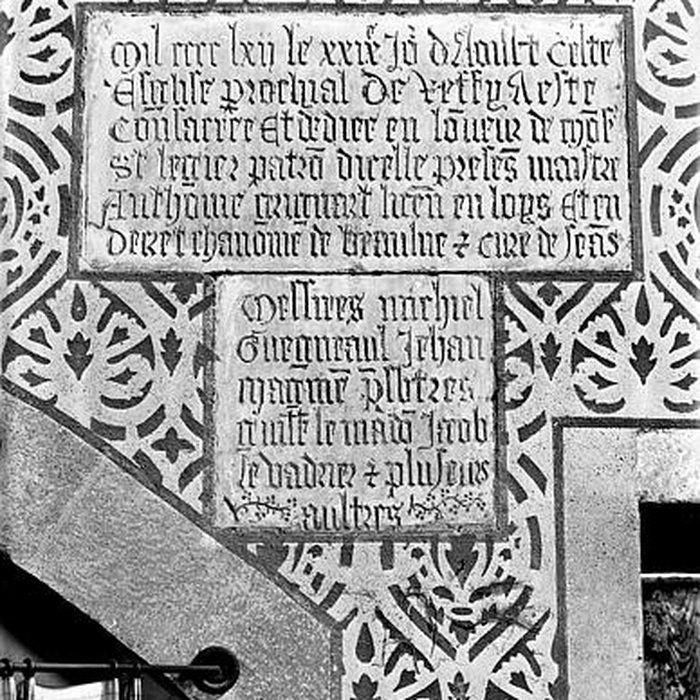 Mil cccc lxii le xxixe Jor d'Aoust Ceste
Esglise prochial De A este
Consacree Et dediee en loneur de mōs
St legier patrō dicelle presēs maistre
Anthoine grignart licen en loys Et en
Decret chanoine de Beaulne & cure de sens
Messires michiel
Guegneaul Jehan
p̄sbtres
le Jacob
le & pluseurs
aultres